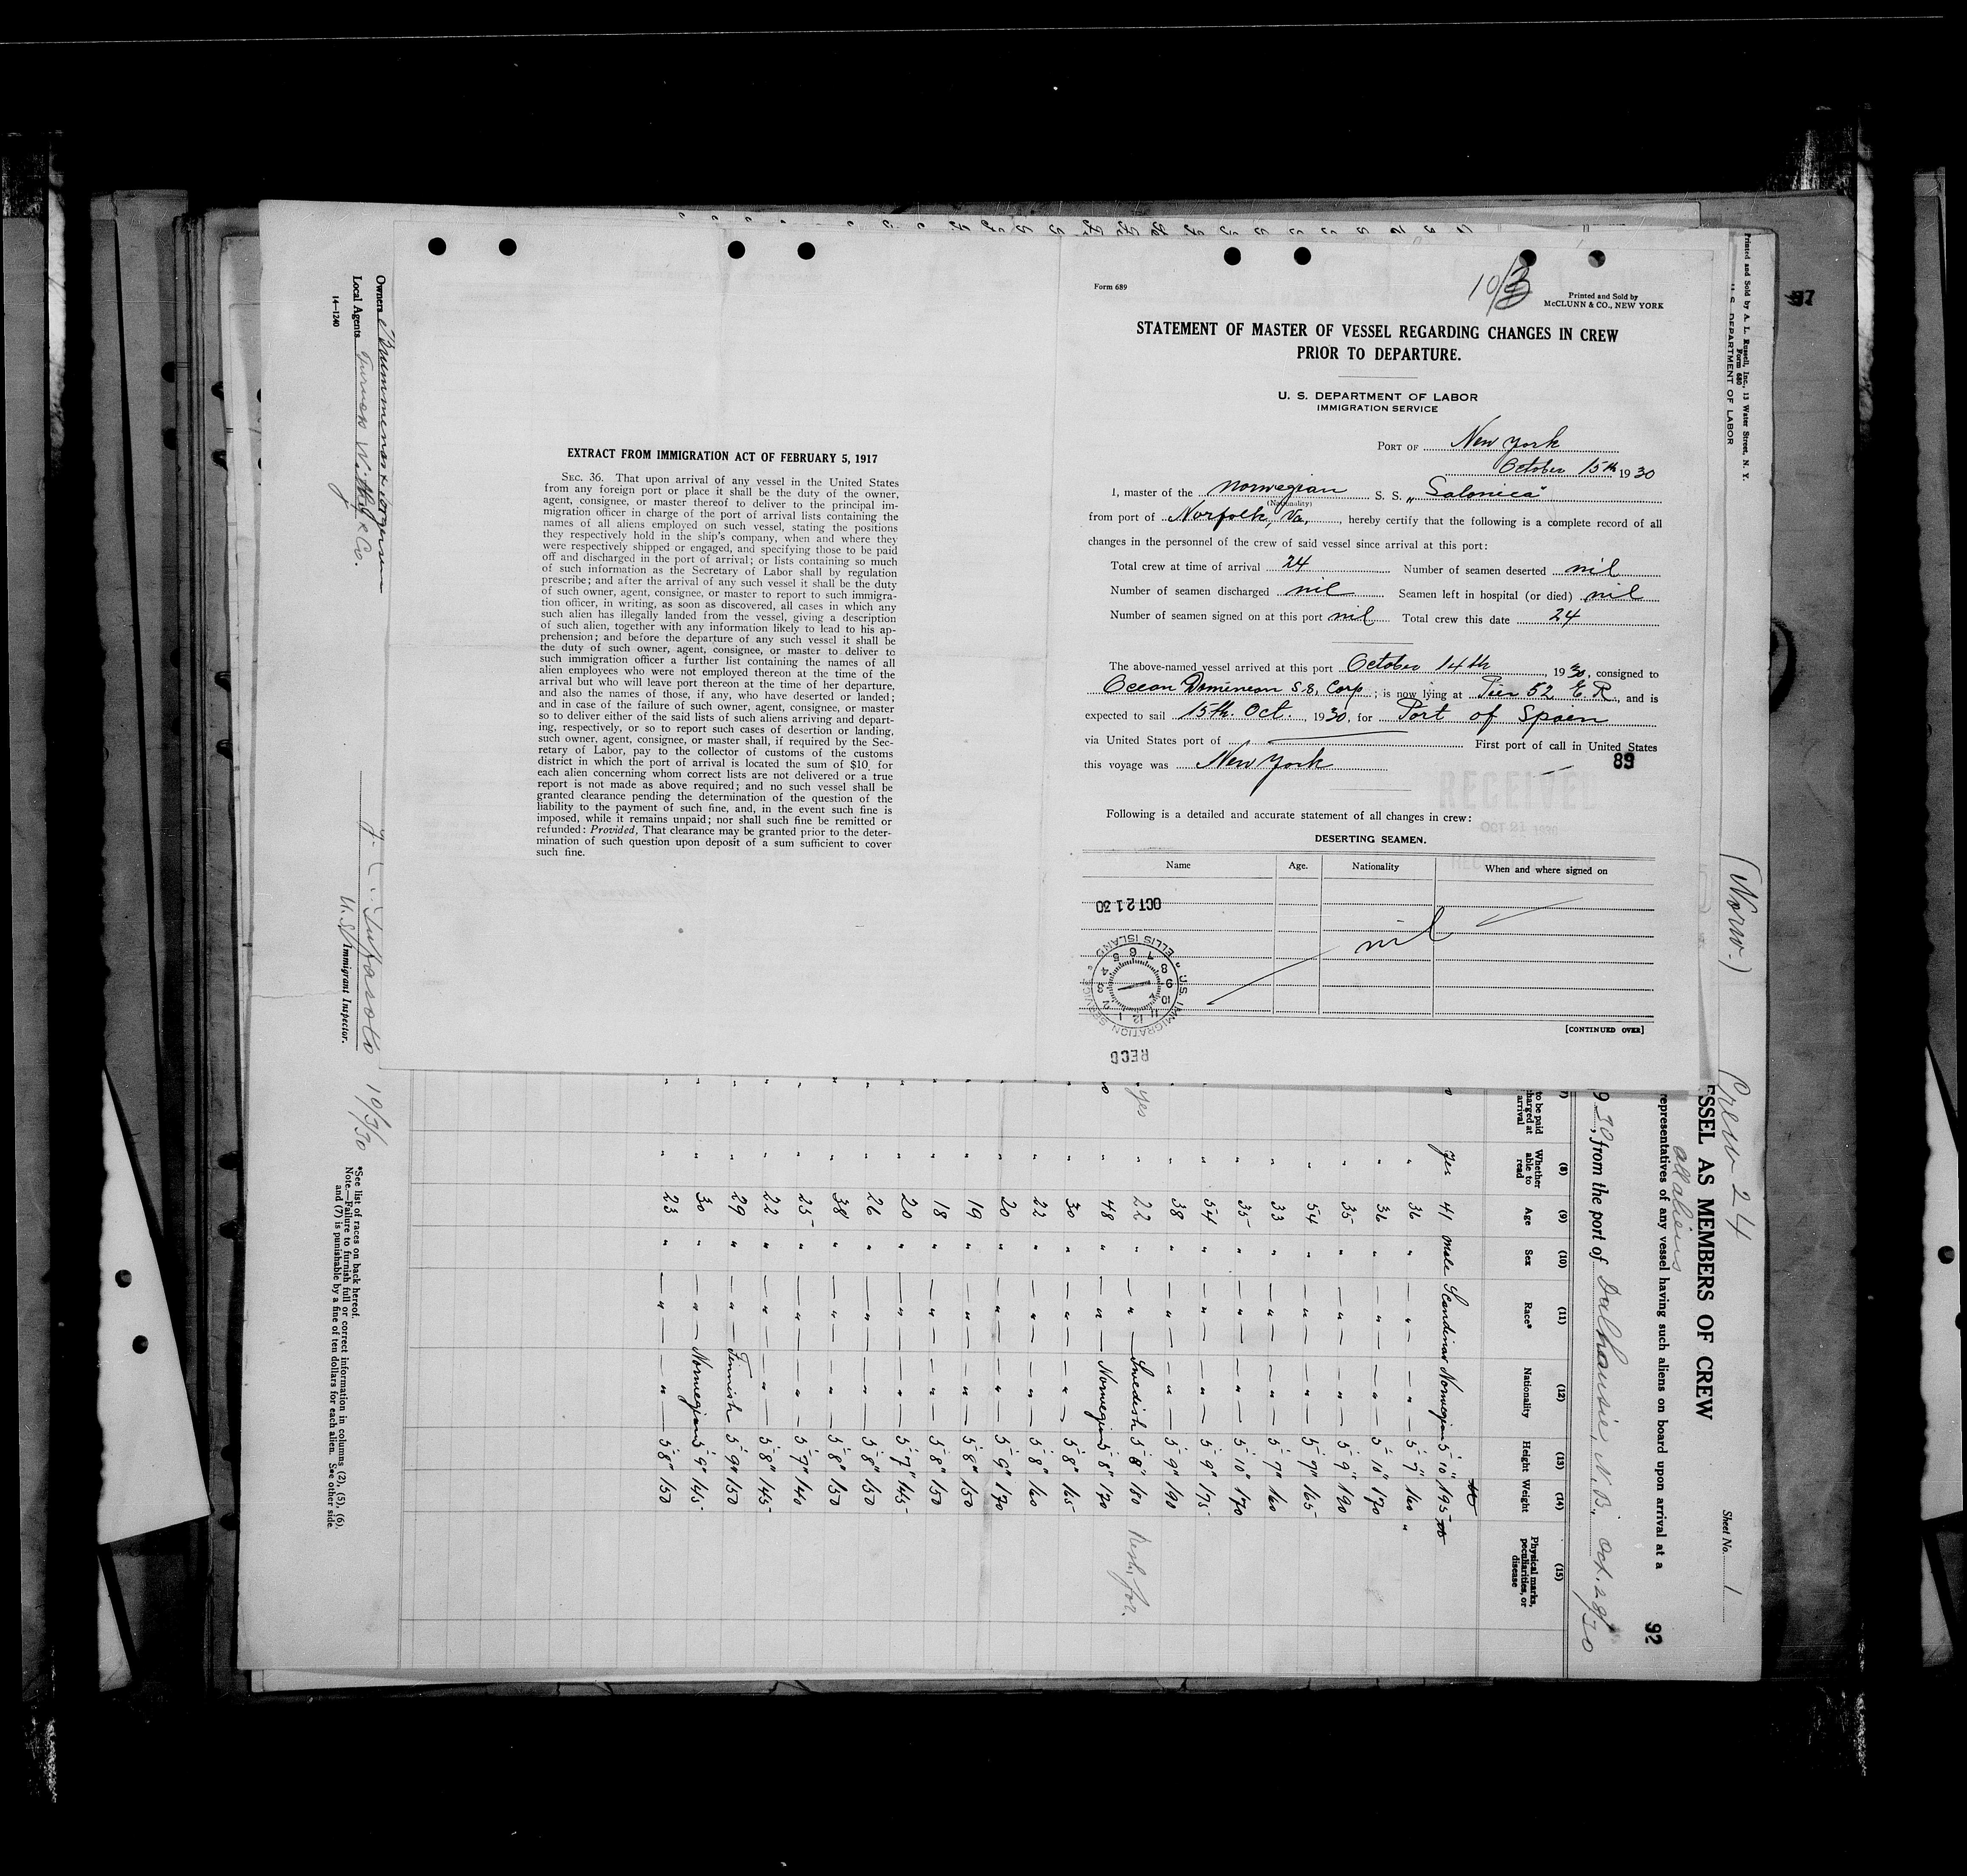 Form 689
Printed and Sold by
McCLUNN & CO., NEW YORK
STATEMENT OF MASTER OF VESSEL REGARDING CHANGES IN CREW
PRIOR TO DEPARTURE.
U. S. DEPARTMENT OF LABOR
IMMIGRATION SERVICE
PORT OF New York
October 15th 1930
I, master of the norwegian S. S. „Salonica"
(Nationality)
from port of Norfolk, Va, hereby certify that the following is a complete record of all
changes in the personnel of the crew of said vessel since arrival at this port:
Total crew at time of arrival 24 Number of seamen deserted nil
Number of seamen discharged nil Seamen left in hospital (or died) nil
Number of seamen signed on at this port nil Total crew this date 24
The above-named vessel arrived at this port October 14th, 1930, consigned to
Ocean Dominion S.S. Corp; is now lying at Pier 52 E. R., and is
expected to sail 15th. Oct. 1930, for Port of Spain
via United States port of First port of call in United States
this voyage was New York
89
RECEIVED
OCT 21 1930
Following is a detailed and accurate statement of all changes in crew:
DESERTING SEAMEN.
Name Age. Nationality When and where signed on
nil
OCT 21 30
U.S. IMMIGRATION SERVICE ELLIS ISLAND
1 2 3 4 5 6 7 8 9 10 11 12
RECD
[CONTINUED OVER]
EXTRACT FROM IMMIGRATION ACT OF FEBRUARY 5, 1917
SEC. 36. That upon arrival of any vessel in the United States
from any foreign port or place it shall be the duty of the owner,
agent, consignee, or master thereof to deliver to the principal im-
migration officer in charge of the port of arrival lists containing the
names of all aliens employed on such vessel, stating the positions
they respectively hold in the ship's company, when and where they
were respectively shipped or engaged, and specifying those to be paid
off and discharged in the port of arrival; or lists containing so much
of such information as the Secretary of Labor shall by regulation
prescribe; and after the arrival of any such vessel it shall be the duty
of such owner, agent, consignee, or master to report to such immigra-
tion officer, in writing, as soon as discovered, all cases in which any
such alien has illegally landed from the vessel, giving a description
of such alien, together with any information likely to lead to his ap-
prehension; and before the departure of any such vessel it shall be
the duty of such owner, agent, consignee, or master to deliver to
such immigration officer a further list containing the names of all
alien employees who were not employed thereon at the time of the
arrival but who will leave port thereon at the time of her departure,
and also the names of those, if any, who have deserted or landed;
and in case of the failure of such owner, agent, consignee, or master
so to deliver either of the said lists of such aliens arriving and depart-
ing, respectively, or so to report such cases of desertion or landing,
such owner, agent, consignee, or master shall, if required by the Sec-
retary of Labor, pay to the collector of customs of the customs
district in which the port of arrival is located the sum of $10 for
each alien concerning whom correct lists are not delivered or a true
report is not made as above required; and no such vessel shall be
granted clearance pending the determination of the question of the
liability to the payment of such fine, and, in the event such fine is
imposed, while it remains unpaid; nor shall such fine be remitted or
refunded: Provided, That clearance may be granted prior to the deter-
mination of such question upon deposit of a sum sufficient to cover
such fine.
97
Printed and Sold by A. L. Russell, Inc., 13 Water Street, N. Y.
Form 680
U. S. DEPARTMENT OF LABOR
(Norw.) Crew 24 Sheet No. 1
ESSEL AS MEMBERS OF CREW
all aliens
representatives of any vessel having such aliens on board upon arrival at a
92
9 30, from the port of Dalhousie, N.B. Oct. 2 9/30
(7) (8) (9) (10) (11) (12) (13) (14) (15)
to be paid
charged at
arrival
Whether
able to
read
Age
Sex
Race*
Nationality
Height
Weight
Physical marks,
peculiarities, or
disease
yes 41 male Scandinav Norwegian 5' 10" 195
" 36 " " " 5' 7" 160 "
" 36 " " " 5' 10" 170
" 35 " " " 5' 9" 190
" 54 " " " 5' 7" 165
" 33 " " " 5' 7" 160
" 35 " " " 5' 10" 170
" 54 " " " 5' 9" 175
" 38 " " " 5' 9" 190
yes " 22 " " Swedish 5' 8" 180
" 48 " " Norwegian 5' 8" 170
" 30 " " " 5' 8" 165
" 22 " " " 5' 8" 160
" 20 " " " 5' 9" 170
" 19 " " " 5' 8" 150
" 18 " " " 5' 8" 150
" 20 " " " 5' 7" 145
" 26 " " " 5' 8" 150
" 38 " " " 5' 8" 150
" 25 " " " 5' 7" 140
" 22 " " " 5' 8" 145
" 29 " " Finnish 5' 9" 150
" 30 " " Norwegian 5' 9" 145
" 23 " " " 5' 8" 150
Owners
Local Agents Furness Withy & Co.
14—1240
U.S. Immigrant Inspector.
10/3/30
*See list of races on back hereof.
Note.—Failure to furnish full or correct information in columns (2), (5), (6),
and (7) is punishable by a fine of ten dollars for each alien. See other side.